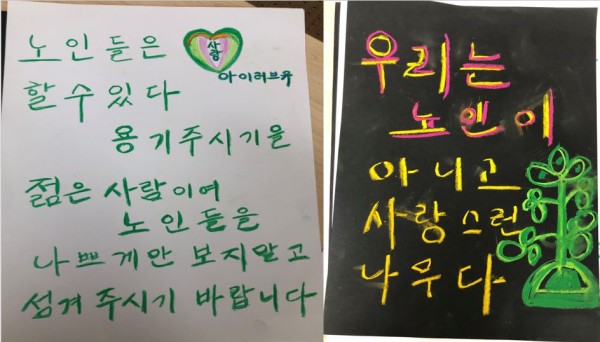 노인들은
사랑
아이러브유
할 수 있다
용기주시기을
젊은 사람이여
노인들을
나쁘게만 보지말고
섬겨 주시기 바랍니다
우리는
노인이
아니고
사랑스런
나무다